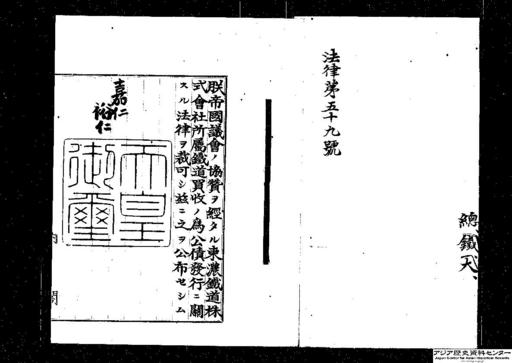 法律第五十九號
總、鐵
朕帝國議會ノ協贊ヲ經タル東濃鐵道株
式會社所屬鐵道買收ノ爲公債發行ニ關
スル法律ヲ裁可シ茲ニ之ヲ公布セシム
嘉仁
裕仁
天皇
御璽
内閣
アジア歴史資料センター
Japan Center for Asian Historical Records